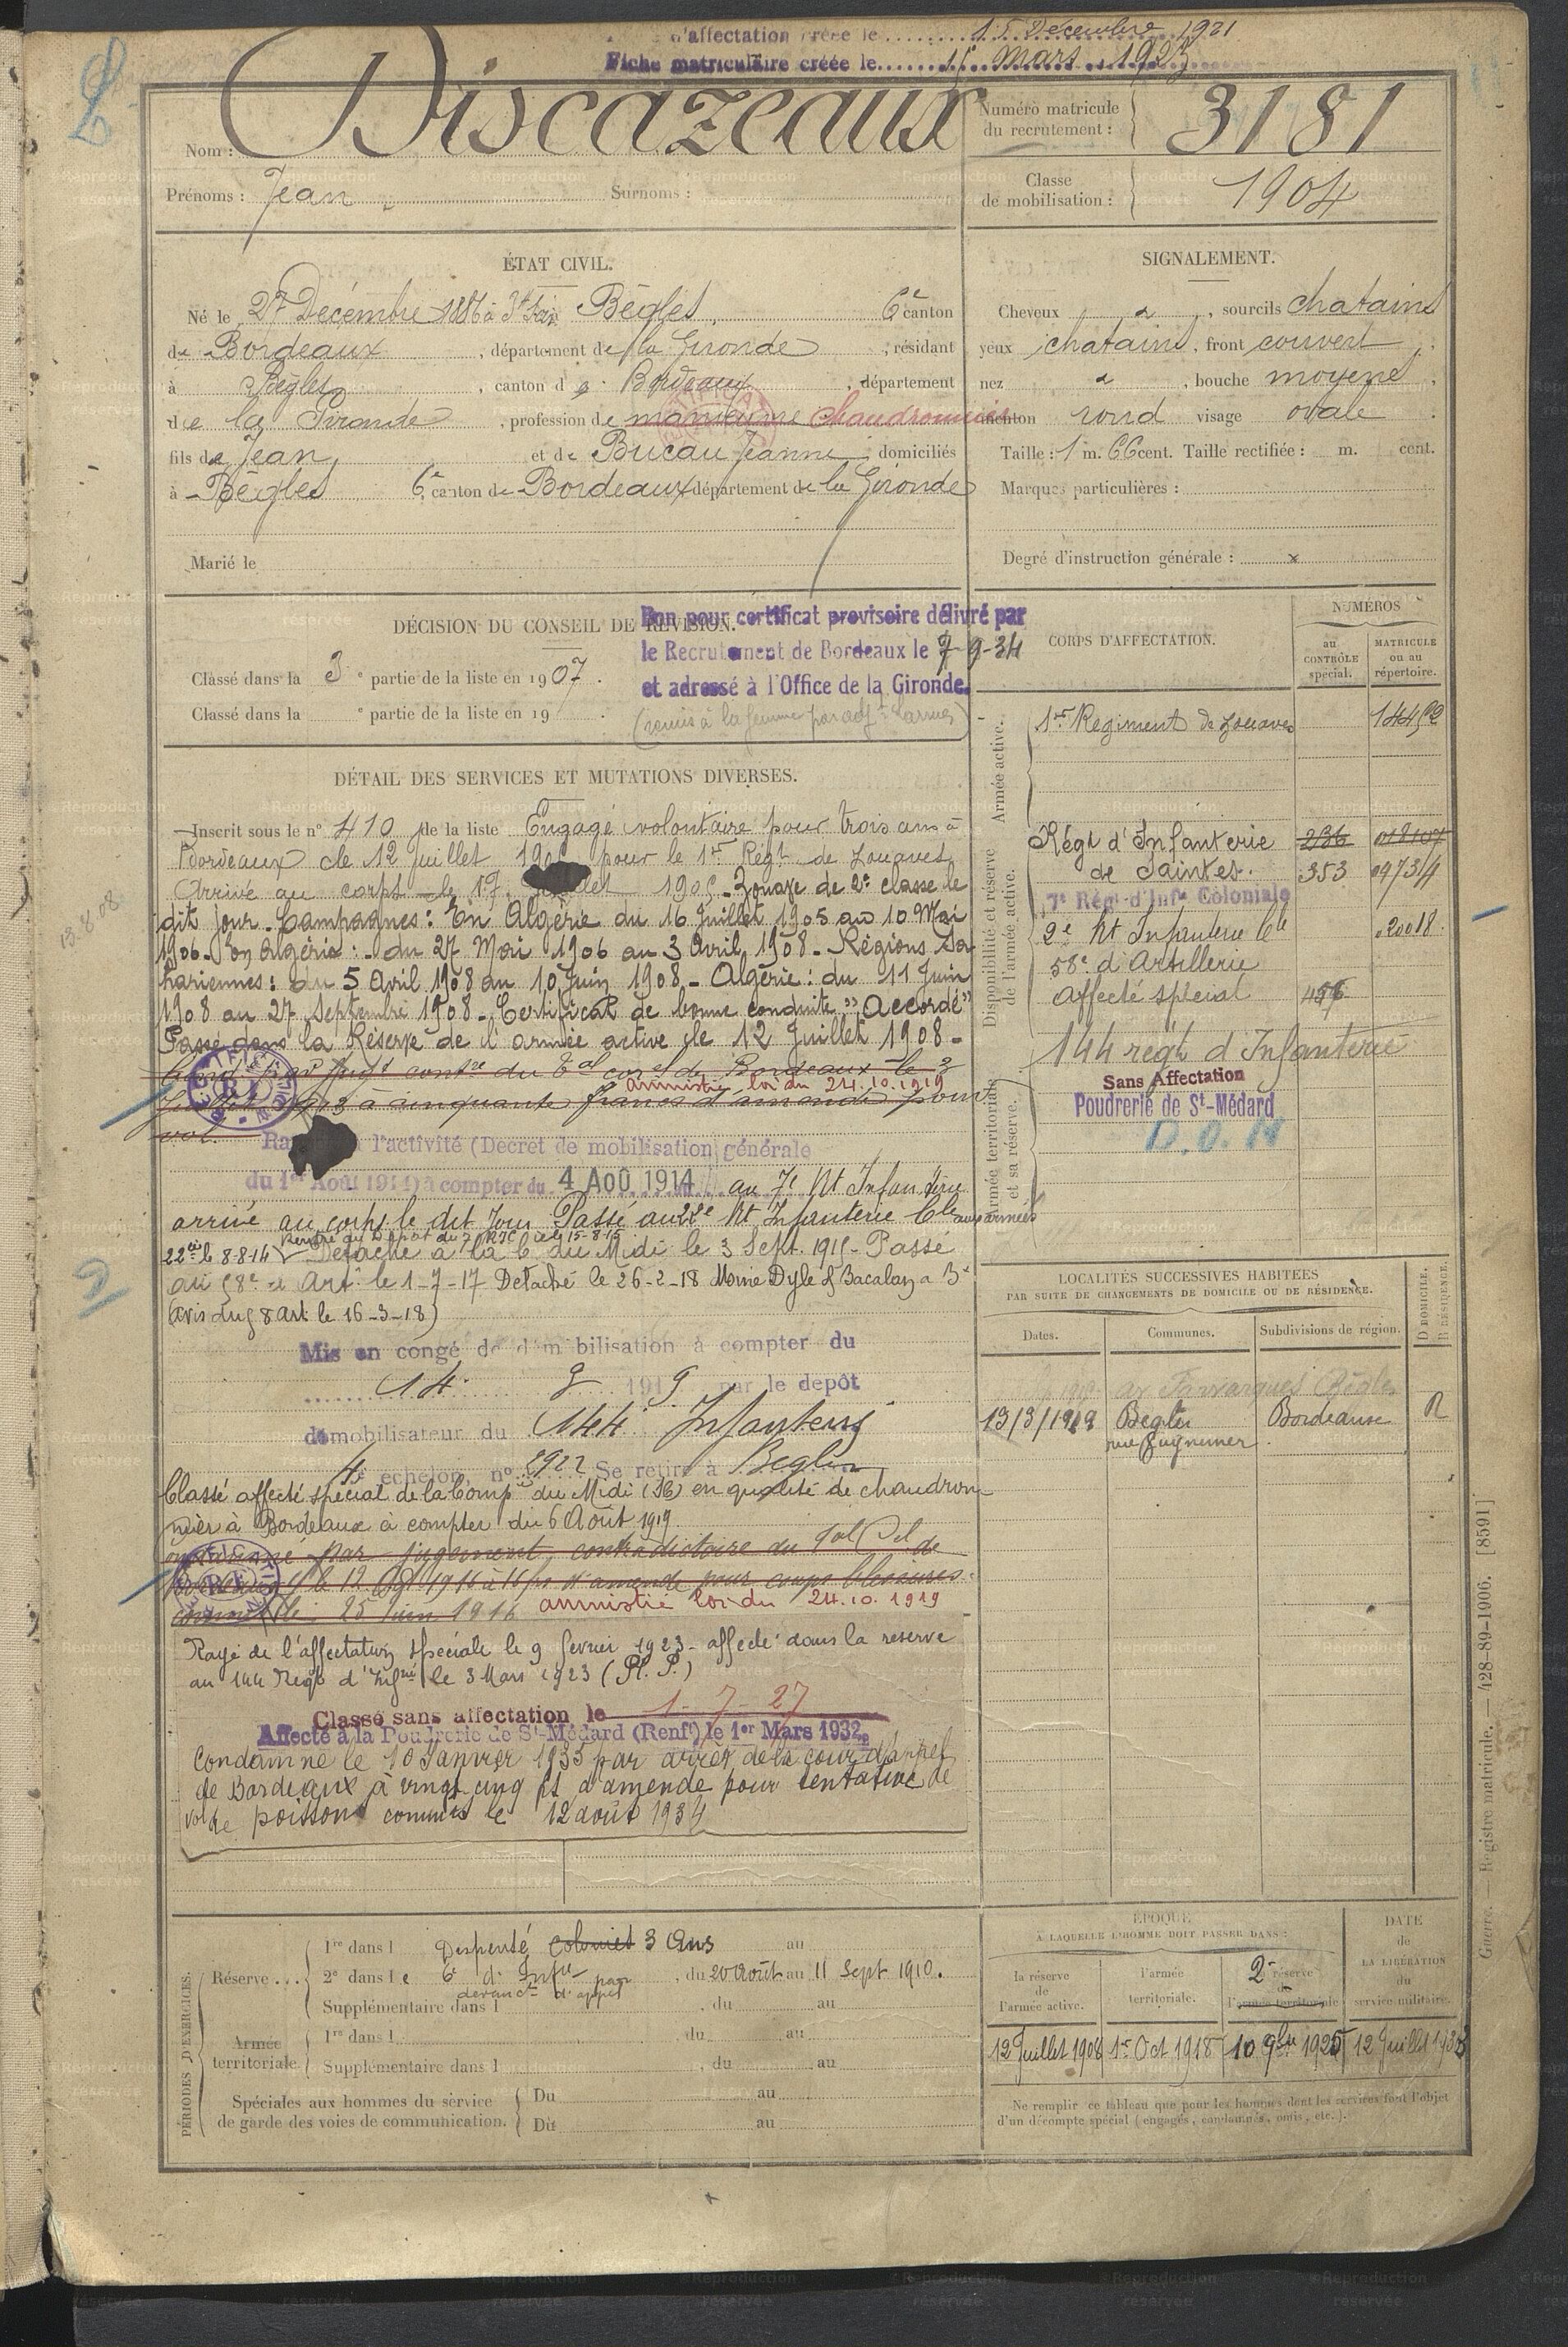 d'affectation créée le 15 Décembre 1921
Fiche matriculaire créée le 15 Mars 1927
Nom : Discazeaux
Numéro matricule du recrutement : 3181
Prénoms : Jean
Surnoms :
Classe de mobilisation : 1904
ÉTAT CIVIL.
Né le 27 Décembre 1886 à Bègles, 6e canton
de Bordeaux, département de la Gironde, résidant
à Bègles, canton de Bordeaux, département
de la Gironde, profession de chaudronnier
fils de Jean et de Bucau Jeanne, domiciliés
à Bègles 6e canton de Bordeaux département de la Gironde
Marié le
SIGNALEMENT.
Cheveux , sourcils chatains
yeux chatains, front couvert
nez , bouche moyene,
menton rond visage ovale
Taille : 1 m. 66 cent. Taille rectifiée : m. cent.
Marques particulières :
Degré d'instruction générale : x
DÉCISION DU CONSEIL DE RÉVISION.
Bon pour certificat provisoire délivré par
le Recrutement de Bordeaux le 7-9-34
et adressé à l'Office de la Gironde.
(remis à la femme par adjt Larmes)
Classé dans la 3e partie de la liste en 1907.
Classé dans la e partie de la liste en 19 .
DÉTAIL DES SERVICES ET MUTATIONS DIVERSES.
Inscrit sous le n° 410 de la liste Engagé volontaire pour trois ans à
Bordeaux le 12 Juillet 190 pour le 1er Régt de Zouaves
Arrivé au corps le 17 1905 - Zouave de 2e classe le
dit jour. Campagnes : En Algérie du 16 Juillet 1905 au 10 Mai
1906 - en Algérie : du 27 Mai 1906 au 3 Avril 1908 - Régions Sa
hariennes : du 5 Avril 1908 au 10 Juin 1908 - Algérie : du 11 Juin
1908 au 27 Septembre 1908 - Certificat de bonne conduite "Accordé"
Passé dans la Réserve de l'armée active le 12 Juillet 1908 -
par Jugt contre du Bal corel de Bordeaux le 3
1913 à cinquante francs d'amende pour
vol.
amnistie loi du 24.10.1919
l'activité (Décret de mobilisation générale
du 1er Août 1914) à compter du 4 AOÛ 1914 au 7e Rt Infanterie
arrivé au corps le dit Jour Passé au 22e Rt Infanterie Cle aux armées
22e ic le 8-8-14 Rentré au Dépôt du 7 RIC le 15-8-15
Détaché à la C. du Midi le 3 Sept. 1915 - Passé
au 58e d'Art. le 1-7-17 Détaché le 26-2-18 Dyle & Bacalan à
(avis du 58 Art le 16-3-18)
Mis en congé de démobilisation à compter du
14 1919 par le dépôt
démobilisateur du 144 Infanterie
4e échelon, n° 2922 Se retire à Bègles
Classé affecté spécial de la Compie du Midi (36) en qualité de chaudron
nier à Bordeaux à compter du 6 Août 1919.
par jugement contradictoire du de
le 12 1916 à 16 frs d'amende pour coups blessures
commis le 25 juin 1916 amnistie loi du 24.10.1919
Rayé de l'affectation spéciale le 9 février 1923 - affecté dans la réserve
au 144 Regt d'Infrie le 3 Mars 1923 (Pl. P.)
Classé sans affectation le 1-7-27
Affecté à la Poudrerie de St-Médard (Renft) le 1er Mars 1932.
Condamné le 10 Janvier 1935 par arrêt de la cour d'appel
de Bordeaux à vingt cinq frs d'amende pour tentative de
vol de poissons commis le 12 août 1934
CORPS D'AFFECTATION.
NUMÉROS
au CONTRÔLE spécial.
MATRICULE ou au répertoire.
Armée active.
1er Régiment de Zouaves
Disponibilité et réserve de l'armée active.
Régt d'Infanterie 236
de Saintes. 353 097314
7e Régt d'Infie Coloniale
2e Rt Infanterie Cle 020018
58e d'Artillerie
Affecté spécial
144 régt d'Infanterie
Armée territoriale et sa réserve.
Sans Affectation
Poudrerie de St-Médard
LOCALITÉS SUCCESSIVES HABITÉES
PAR SUITE DE CHANGEMENTS DE DOMICILE OU DE RÉSIDENCE.
Dates. Communes. Subdivisions de région. D DOMICILE. R RÉSIDENCE.
13/3/1919 Bègles Bordeaux R
rue Guynemer
13.8.08
PÉRIODES D'EXERCICES.
Réserve ... 1re dans l Dispensé colonies 3 Ans au
2e dans le 6e d'Infie, du 20 Août au 11 Sept 1910.
par devanct d'appel
Supplémentaire dans l , du au
Armée territoriale 1re dans l , du au
Supplémentaire dans l , du au
Spéciales aux hommes du service Du au
de garde des voies de communication. Du au
ÉPOQUE
À LAQUELLE L'HOMME DOIT PASSER DANS :
la réserve de l'armée active.
l'armée territoriale.
2e réserve de l'armée territoriale
DATE DE LA LIBÉRATION du service militaire.
12 Juillet 1908 1er Oct 1918 10 9bre 1925 12 Juillet 1933
Ne remplir ce tableau que pour les hommes dont les services font l'objet
d'un décompte spécial (engagés, condamnés, omis, etc.).
Guerre. — Registre matricule. — 428-89-1906. [8591]